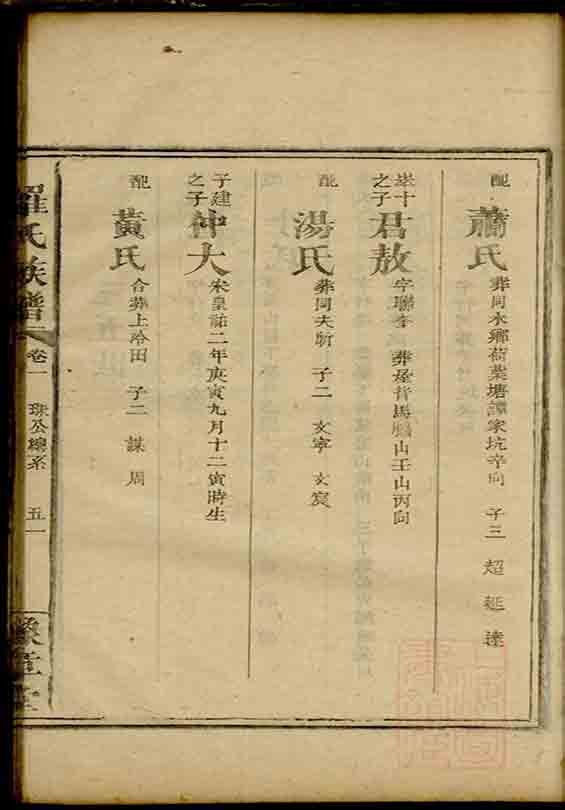 配 蕭氏 葬同水鄉荷葉塘譚家坑辛向 子三 超 延 達
之子 君敖 字聯奎 葬 馬 山壬山丙向
配 湯氏 葬同夫 子二 文寧 文宸
子建之子 仲大 宋皇祐二年庚寅九月十二寅時生
配 黃氏 合葬上 田 子二 謀 周
羅氏族譜 卷一 珠公總系 五一